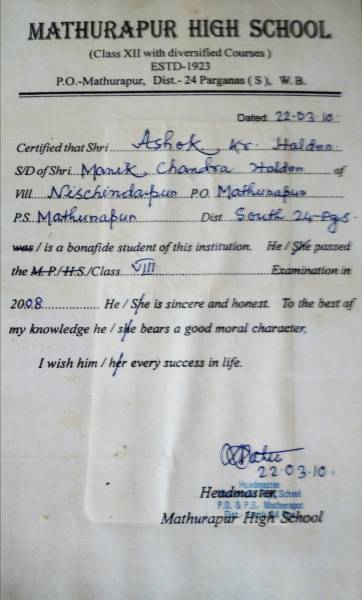 MATHURAPUR HIGH SCHOOL
(Class XII with diversified Courses)
ESTD-1923
P.O.-Mathurapur, Dist.- 24 Parganas (S), W.B.
Dated 22-03-10
Certified that Shri Ashok Kr. Halder
S/D of Shri Manik Chandra Halder of
Vill Nischindapur P.O. Mathurapur
P.S. Mathurapur Dist South 24-Pgs.
was / is a bonafide student of this institution. He / She passed
the M.P./H.S./Class VIII Examination in
2008 He / She is sincere and honest. To the best of
my knowledge he / she bears a good moral character.
I wish him / her every success in life.
22-03-10.
Headmaster
Mathurapur High School
Headmaster
School
P.O. & P.S.- Mathurapur